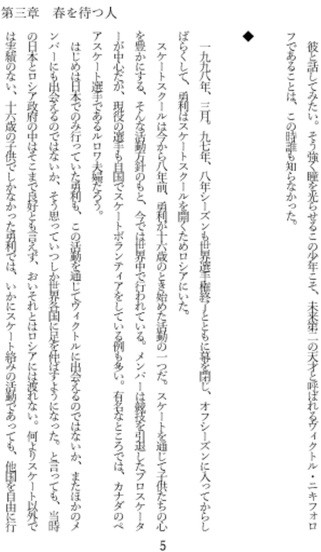 第三章　春を待つ人
彼と話してみたい。そう強く瞳を光らせるこの少年こそ、未来第二の天才と呼ばれるヴィクトル・ニキフォロ
フであることは、この時誰も知らなかった。
◆
一九九八年、三月。九七年、八年シーズンも世界選手権終了とともに幕を閉じ、オフシーズンに入ってからし
ばらくして、勇利はスケートスクールを開くためロシアにいた。
スケートスクールは今から八年前、勇利が十六歳のとき始めた活動の一つだ。スケートを通じて子供たちの心
を豊かにする、そんな活動方針のもと、今では世界中で行われている。メンバーは競技を引退したプロスケータ
ーが中心だが、現役の選手も自国でスケートボランティアをしている例も多い。有名なところでは、カナダのペ
アスケート選手であるルロワ夫婦だろう。
はじめは日本でのみ行っていた勇利も、この活動を通じてヴィクトルに出会えるのではないか、またほかのメ
ンバーにも出会えるのではないか、そう思っていつしか世界各国に足を伸ばすようになった。と言っても、当時
の日本とロシア政府の仲はそこまで良好とも言えず、おいそれとはロシアには渡れない。何よりスケート以外で
は実績のない、十六歳の子供でしかなかった勇利では、いかにスケート絡みの活動であっても、他国を自由に行
5